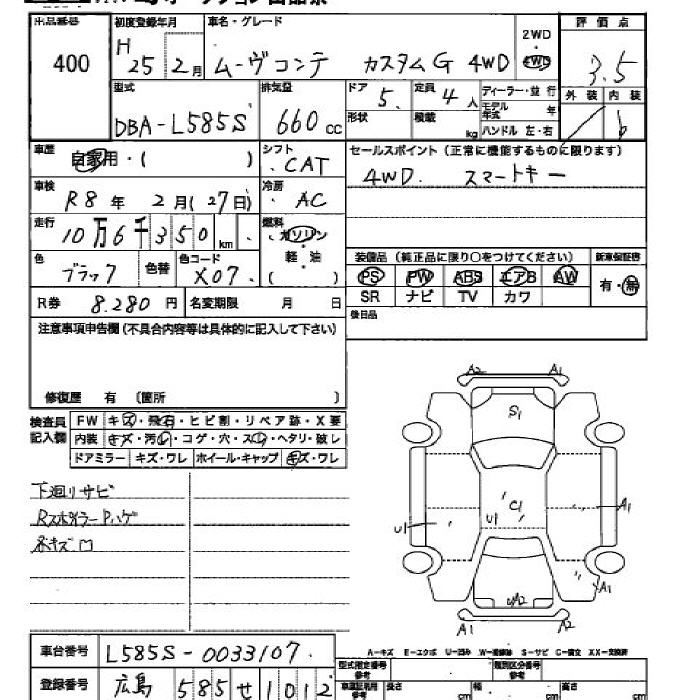 出品番号 初度登録年月 車名・グレード 2WD・4WD 評価点
400 H 25 2月 ムーヴコンテ カスタムG 4WD 3.5
型式 排気量 ドア 5. 定員 4人 ディーラー・並行 外装 内装
DBA-L585S 660cc 形状 積載 kg モデル年式 年 b
ハンドル 左・右
車歴 自家用・( ) シフト .CAT セールスポイント(正常に機能するものに限ります)
車検 R8年 2月(27日) 冷房 AC 4WD. スマートキー
走行 10万6千350km 燃料 ・ガソリン
・軽・油
・( )
色 ブラック 色替 色コード X07. 装備品(純正品に限り○をつけてください) 新車保証書
PS PW ABS エアB AW 有・無
SR ナビ TV カワ
R券 8.280円 名変期限 月 日 後日品
注意事項申告欄(不具合内容等は具体的に記入して下さい)
修復歴 有 〔箇所 〕
検査員記入欄 FW キズ・飛石・ヒビ割・リペア跡・X要
内装 キズ・汚レ・コゲ・穴・スレ・ヘタリ・破レ
ドアミラー キズ・ワレ ホイール・キャップ キズ・ワレ
A2 A1
S1
下廻リサビ
Rスポイラーハゲ
C1
A1
U1
U1
A1
A2
A1 A2
A-キズ E-エクボ U-凹み W-補修跡 S-サビ C-腐食 XX-交換済
車台番号 L585S-0033107. 型式指定番号 参考 類別区分番号 参考
登録番号 広島 585 せ 1012 車庫証明用 参考 長さ cm 幅 cm 高さ cm